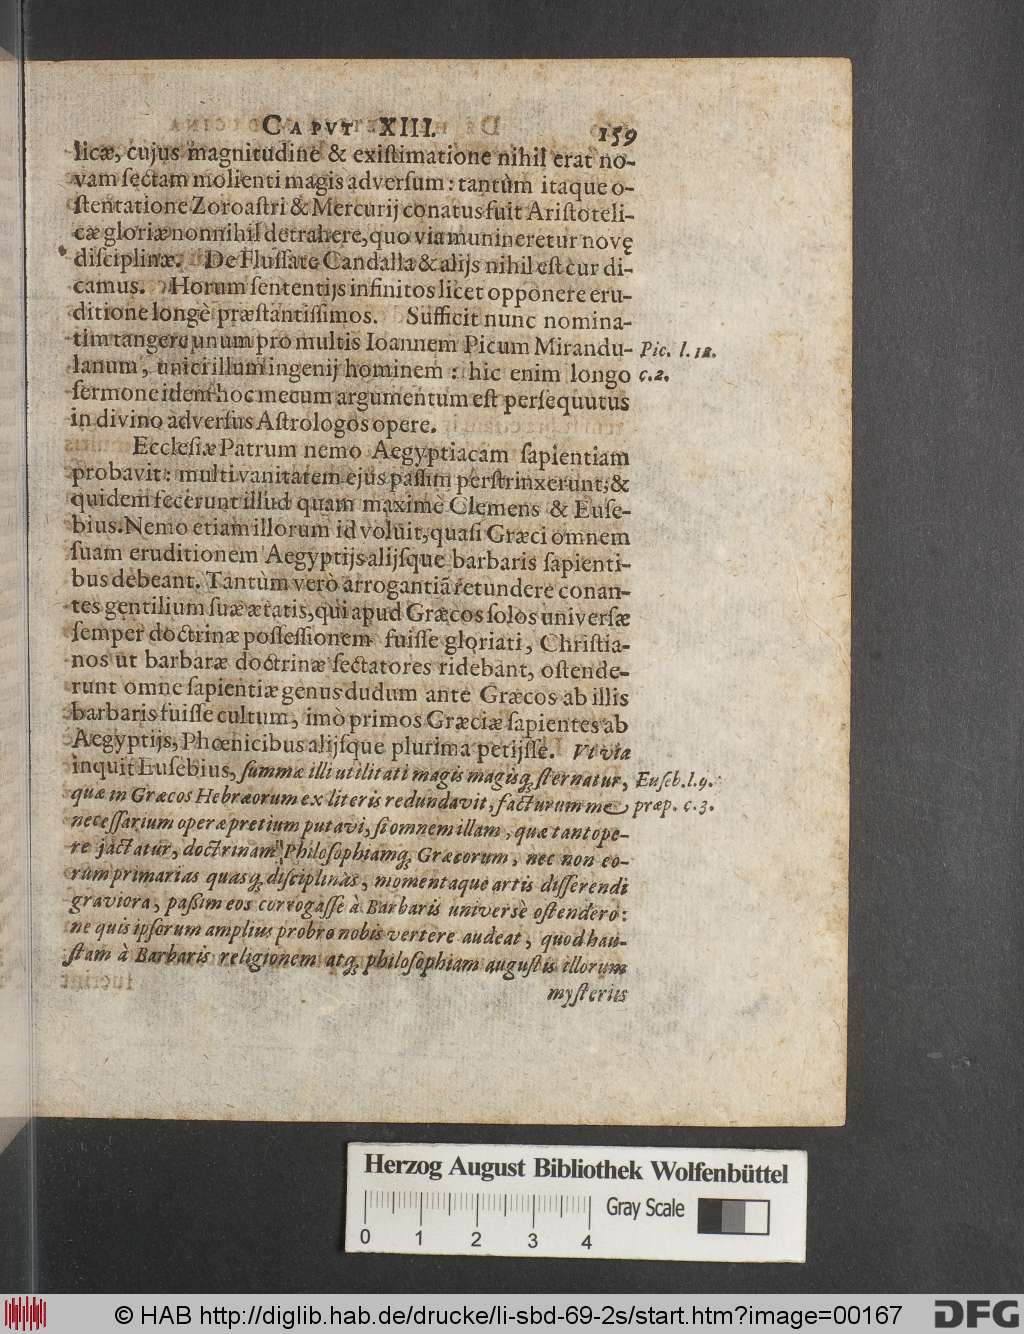 CAPVT XIII. 159
licæ, cujus magnitudine & existimatione nihil erat no-
vam sectam molienti magis adversum: tantùm itaque o-
stentatione Zoroastri & Mercurij conatus fuit Aristoteli-
cæ gloriæ nonnihil detrahere, quo via munineretur novę
disciplinæ. De Flussate Candalla & alijs nihil est cur di-
camus. Horum sententijs infinitos licet opponere eru-
ditione longè præstantissimos. Sufficit nunc nomina-
tim tangere unum pro multis Ioannem Picum Mirandu- Pic. l. 12.
lanum, unici illum ingenij hominem: hic enim longo c. 2.
sermone idem hoc mecum argumentum est persequutus
in divino adversus Astrologos opere.
Ecclesiæ Patrum nemo Aegyptiacam sapientiam
probavit: multi vanitatem ejus passim perstrinxerunt; &
quidem fecerunt illud quam maximè Clemens & Euse-
bius. Nemo etiam illorum id voluit, quasi Græci omnem
suam eruditionem Aegyptijs alijsque barbaris sapienti-
bus debeant. Tantùm verò arrogantiã retundere conan-
tes gentilium suæ ætatis, qui apud Græcos solos universæ
semper doctrinæ possessionem fuisse gloriati, Christia-
nos ut barbaræ doctrinæ sectatores ridebant, ostende-
runt omne sapientiæ genus dudum ante Græcos ab illis
barbaris fuisse cultum, imò primos Græciæ sapientes ab
Aegyptijs, Phœnicibus alijsque plurima petijsse. Vt via
inquit Eusebius, summæ illi utilitati magis magisq; sternatur, Euseb. l. 9.
quæ in Græcos Hebræorum ex literis redundavit, facturum me præp. c. 3.
necessarium operæpretium putavi, si omnem illam, quæ tantope-
re jactatur, doctrinam Philosophiamq; Græcorum, nec non eo-
rum primarias quasq; disciplinas, momentaque artis disserendi
graviora, passim eos corrogasse à Barbaris universè ostendero:
ne quis ipsorum amplius probro nobis vertere audeat, quod hau-
stam à Barbaris religionem atq; philosophiam augustis illorum
mysteriis
Herzog August Bibliothek Wolfenbüttel
0 1 2 3 4
Gray Scale
© HAB http://diglib.hab.de/drucke/li-sbd-69-2s/start.htm?image=00167
DFG